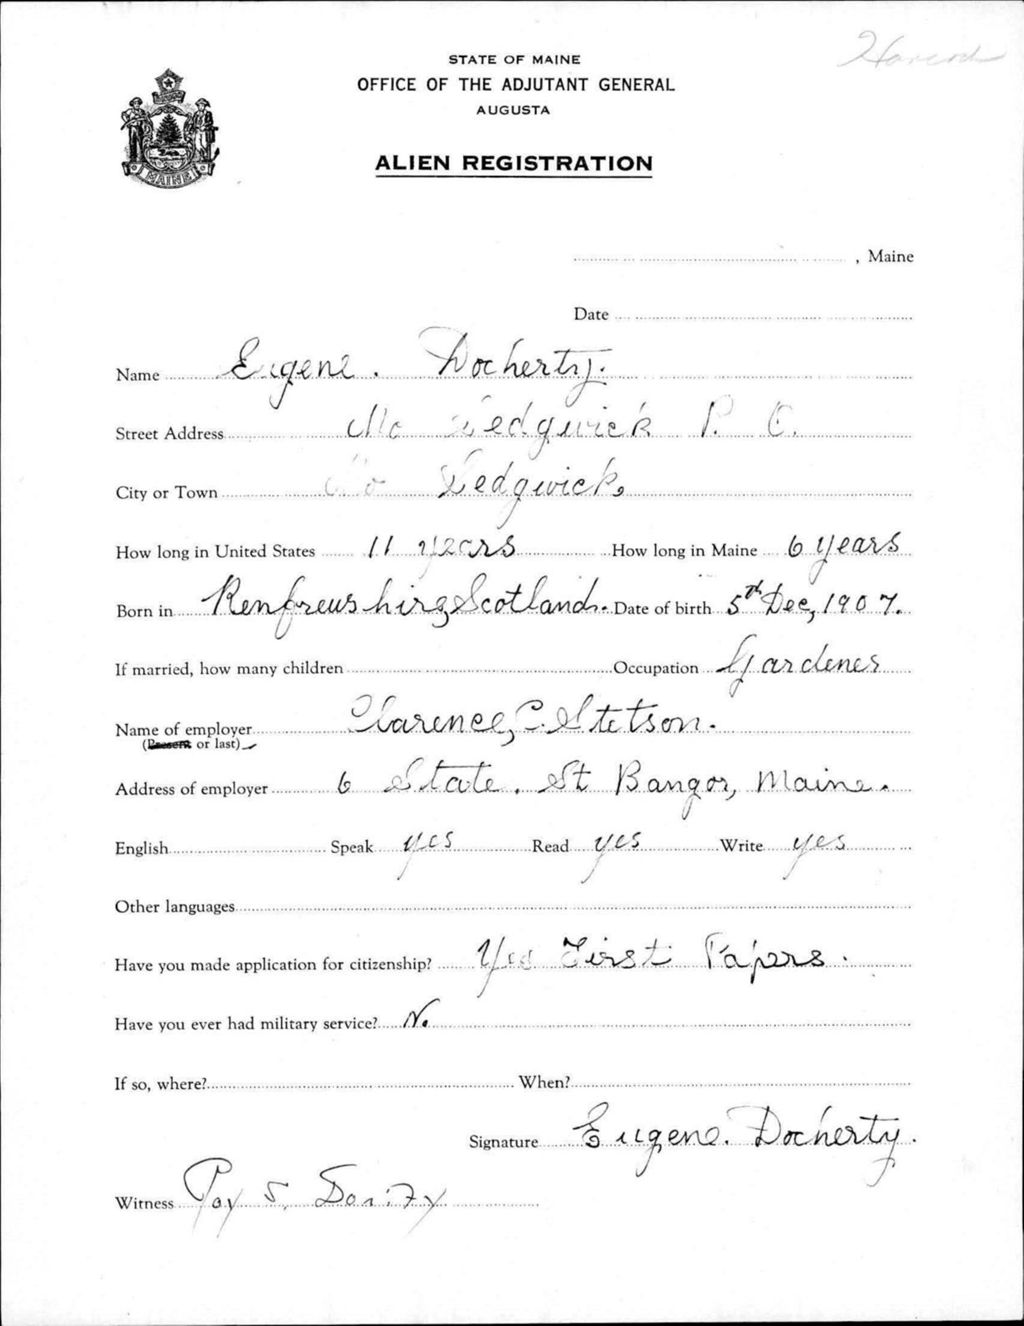 STATE OF MAINE
OFFICE OF THE ADJUTANT GENERAL
AUGUSTA
ALIEN REGISTRATION
MAINE
, Maine
Date
Name Eugene. Docherty.
Street Address No Sedgwick P. O.
City or Town No Sedgwick,
How long in United States 11 years How long in Maine 6 years
Born in Renfrewshire, Scotland. Date of birth 5th Dec, 1907.
If married, how many children Occupation Gardener
Name of employer Clarence, C. Stetson.
(Present or last)
Address of employer 6 State. St Bangor, Maine.
English Speak yes Read yes Write yes
Other languages
Have you made application for citizenship? Yes First Papers.
Have you ever had military service? No
If so, where? When?
Signature Eugene. Docherty.
Witness S.